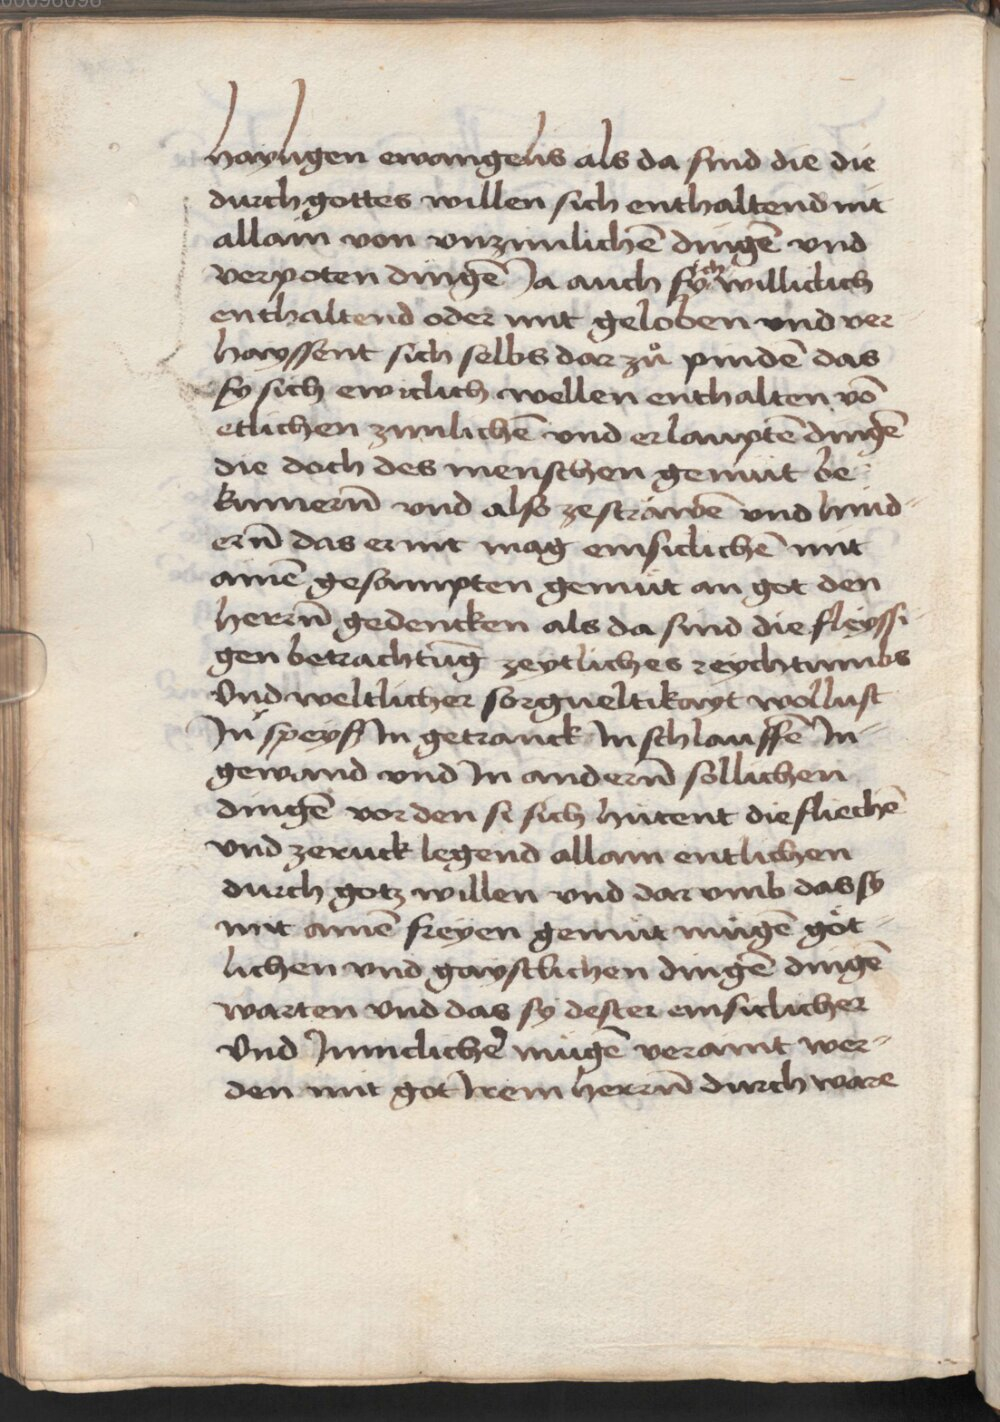 hayligen ewangelis als da sind die die
durch gottes willen sich enthaltend nit
allain von vnzimlichē dingē vnd
verpoten dingē Ja auch sy sich williclich
enthaltend oder mit geloben vnd ver-
hayssent sich selbs dar zů pindē das
sy sich ewiclich wellen enthalten vō
etlichen zimlichē vnd erlauptē dingē
die doch des menschen gemüt be
kumerñ vnd also zesträwē vnd hind-
erñ das er nit mag ainsiclichē mit
ainē gesampten gemüt an got den
herrñ gedencken als da sind die fleyssi-
gen betrachtūg zeytliches reychtumbs
vnd weltlicher sorgueltikayt wollust
Jn speyß Jn getranck Jn schlauffē Jn-
gewand vnd Jn anderñ sollichen
dingē vor den si sich hütent die fliechē
vnd zeruck legend allain entlichen
durch gotz willen vnd dar vmb das sy
mit ainē freyen gemüt mügē göt-
lichen vnd gaystlichen dingē dingē
warten vnd das sy dester ainsiclicher
vnd Jnniclicher mügē veraint wer-
den mit got Jrem herrñ durch ware